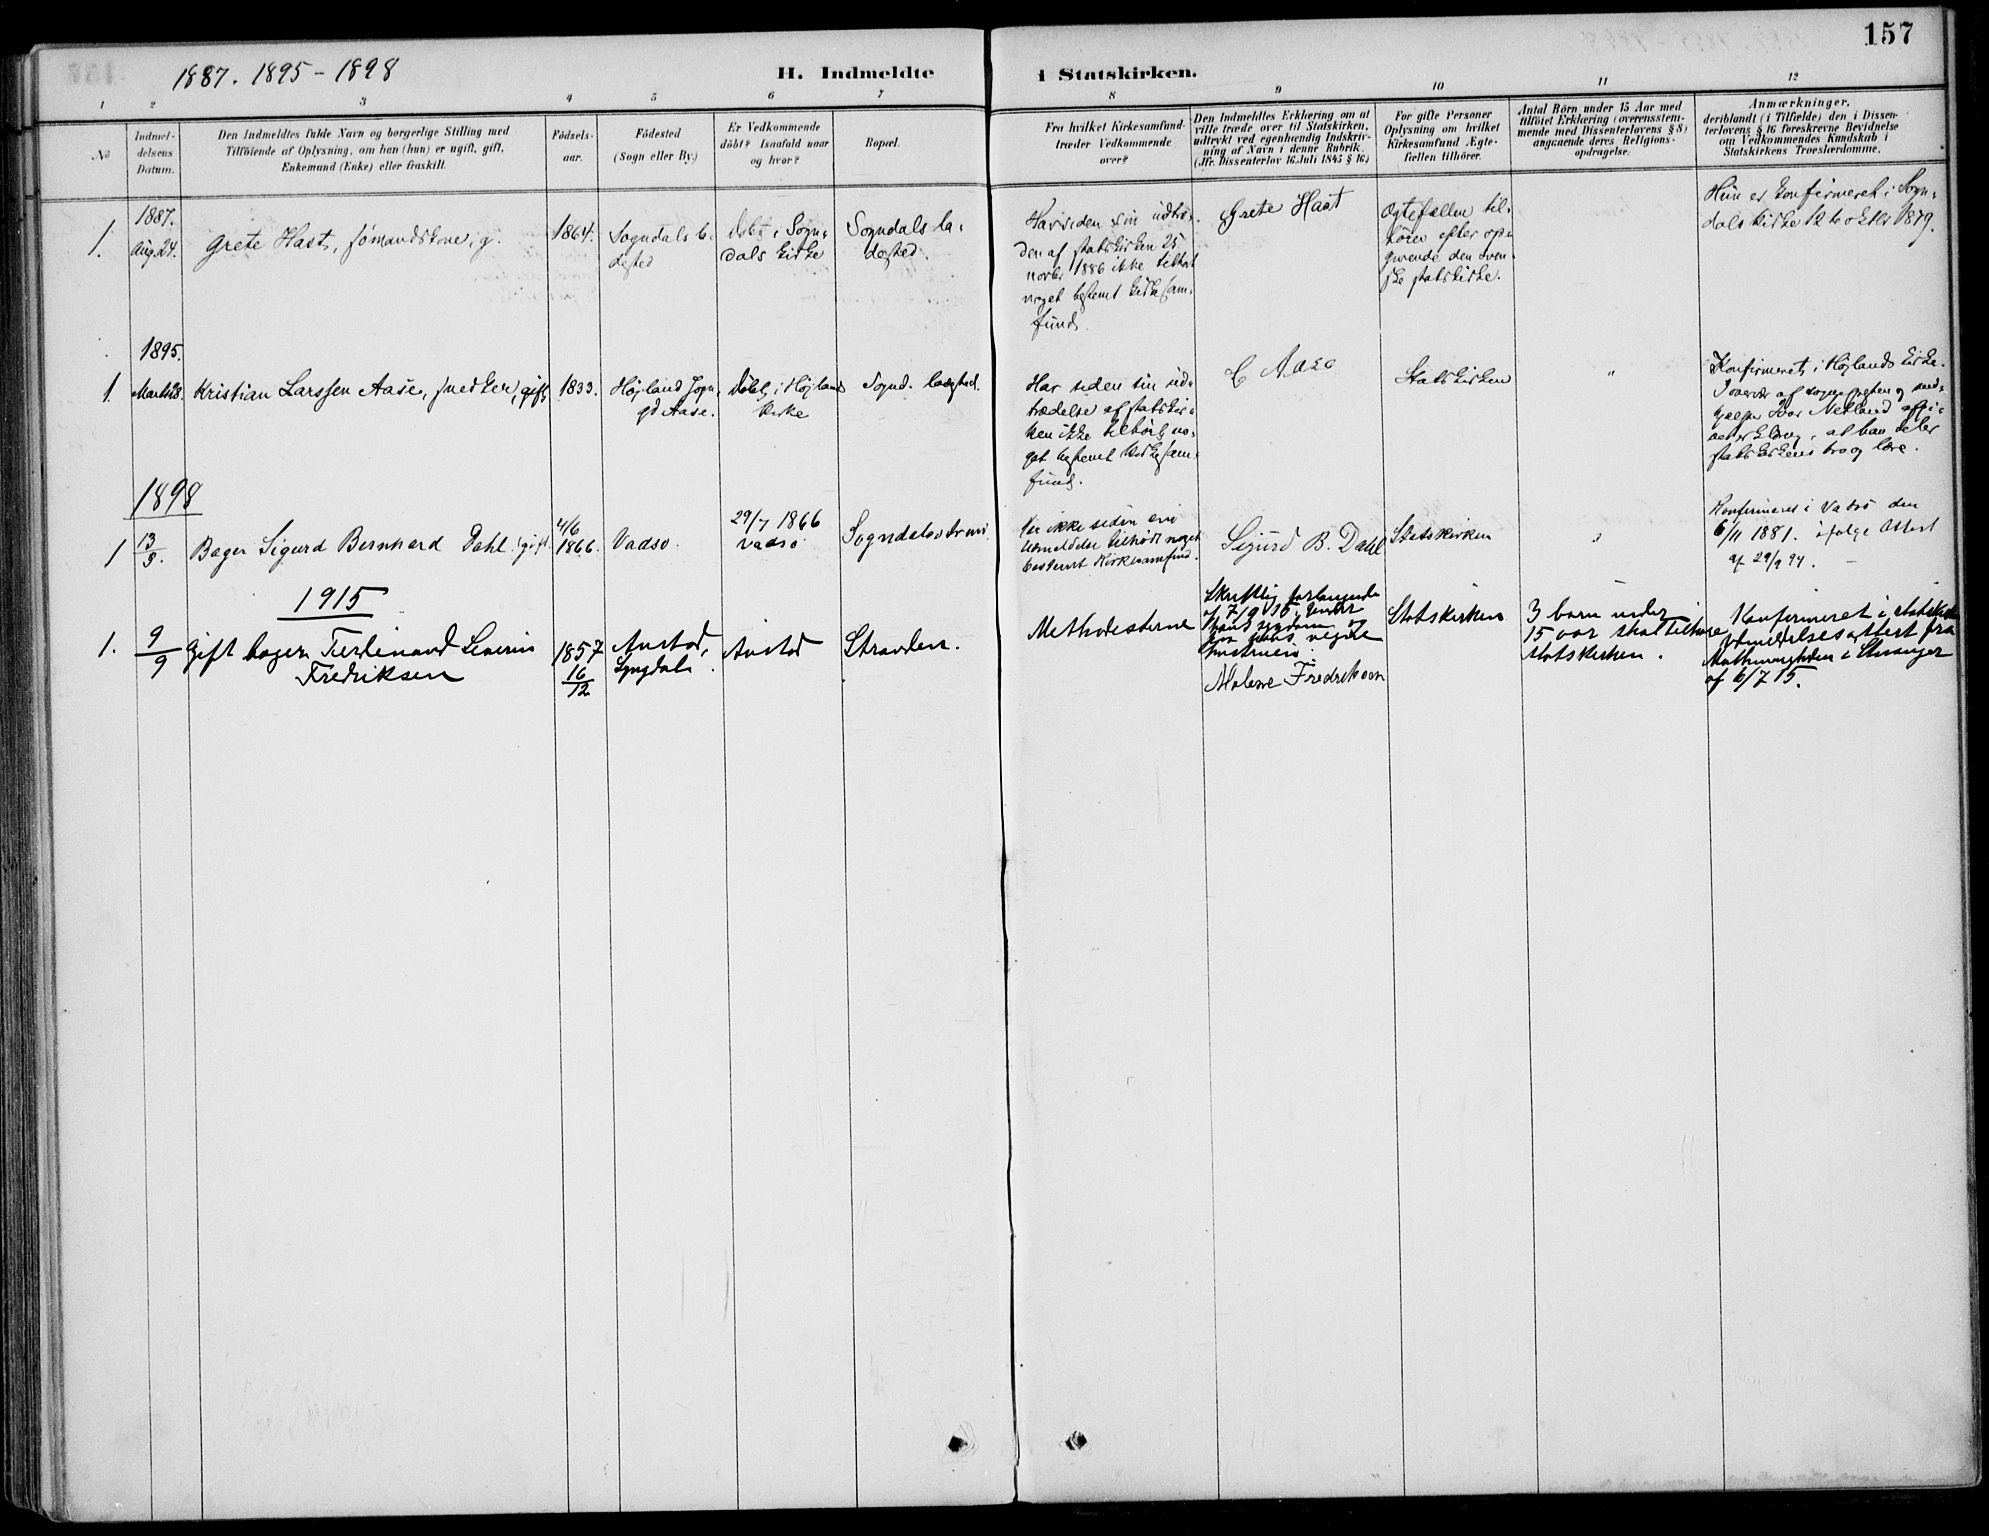 157
1887. 1895 - 1898
H. Indmeldte i Statskirken.
1 2 3 4 5 6 7 8 9 10 11 12
No
Indmel-
delsens
Datum.
Den Indmeldtes fulde Navn og borgerlige Stilling med
Tilföiende af Oplysning, om han (hun) er ugift, gift,
Enkemand (Enke) eller fraskilt.
Födsels-
aar.
Födested
(Sogn eller By.)
Er Vedkommende
döbt? Isaafald naar
og hvor?
Bopæl.
Fra hvilket Kirkesamfund
træder Vedkommende
over?
Den Indmeldtes Erklæring om at
ville træde over til Statskirken,
udtrykt ved egenhændig Indskriv-
ning af Navn i denne Rubrik.
(Jfr. Dissenterlov 16 Juli 1845 § 16.)
For gifte Personer
Oplysning om hvilket
Kirkesamfund Ægte-
fællen tilhörer.
Antal Börn under 15 Aar med
tilföiet Erklæring (overensstem-
mende med Dissenterlovens § 8)
angaaende deres Religions-
opdragelse.
Anmærkninger,
deriblandt (i Tilfælde) den i Dissen-
terlovens § 16 foreskrevne Bevidnelse
om Vedkommendes Kundskab i
Statskirkens Troeslærdomme.
1.
1887.
Aug. 24.
Grete Hast, sømandskone, g.
1864.
Sogndals
døbt i Sogn-
dals kirke
Sogndals la-
dested.
Har siden sin udtræ-
den af statskirken 25
novbr 1886 ikke tilhørt
noget bestemt kirkesam-
fund.
Grete Hast
Ægtefællen til-
hører efter opgi-
vende den sven-
ske statskirke.
Hun er konfirmeret i Sogn-
dals kirke 12 oktbr 1879.
1895.
1.
Marts 28.
Kristian Larssen Aase, snedker, gift
1833.
Højland sogn,
gd Aase.
Døbt i Højlands
kirke
Sognd. ladested.
Har siden sin ud-
trædelse af statskir-
ken ikke tilhørt no-
get bestemt kirkesam-
fund.
Aase
Statskirken
"
Konfirmeret i Højlands kirke.
I overvær af sognepresten og med-
hjælper Netland
at han deler
statskirkens tro og lære.
1898
1
13/3.
Bager Sigurd Bernhard Dahl. (gift)
4/6
1866.
Vadsø.
29/7 1866
Vadsø
Sogndalsstrand
Har ikke siden sin
Udmeldelse tilhørt noget
bestemt Kirkesamfund.
Sigurd B. Dahl
Statskirken
"
Konfirmeret i Vadsø den
6/11 1881. ifølge Attest
af 29/9 94. -
1915
1.
9/9
Gift bager Ferdinand Severin
Fredriksen
1857
16/12
Austad,
Lyngdal.
Austad
Stranden.
Methodisterne
Skriftlig forlangende
af 7/9 15. Under
hans sygdom og
paa hans vegne
hustruen:
Malene Fredriksen
Statskirken
3 barn under
15 aar skal tilhøre
statskirken.
Konfirmeret i statskirken
Udmeldelsesattest fra
i Stavanger
af 6/7 15.